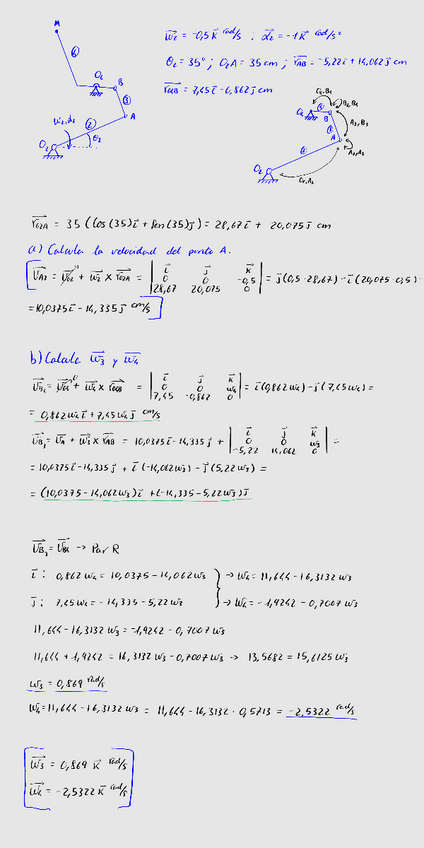 M
ω₂ = -0,5 k rad/s , α₂ = -1 k rad/s²
θ₂ = 35° ; O₂A = 35 cm ; r_AB = -5,22 i + 14,062 j cm
r_O4B = 7,45 i - 0,862 j cm
O₄ B
A
ω₂, α₂
θ₂
O₂
O₄ B
A
O₂
r_O2A = 35 (Cos(35) i + Sen(35) j) = 28,67 i + 20,075 j cm
a) Calcula la velocidad del punto A.
v_A2 = v_O2 + ω₂ x r_O2A = | i j k ; 0 0 -0,5 ; 28,67 20,075 0 | = j(0,5 · 28,67) - i(20,075 · 0,5) =
= 10,0375 i - 14,335 j cm/s
b) Calcula ω₃ y ω₄
v_B4 = v_O4 + ω₄ x r_O4B = | i j k ; 0 0 ω₄ ; 7,45 -0,862 0 | = i(0,862 ω₄) - j(7,45 ω₄) =
= 0,862 ω₄ i + 7,45 ω₄ j cm/s
v_B3 = v_A + ω₃ x r_AB = 10,0375 i - 14,335 j + | i j k ; 0 0 ω₃ ; -5,22 14,062 0 | =
= 10,0375 i - 14,335 j + i(-14,062 ω₃) - j(5,22 ω₃) =
= (10,0375 - 14,062 ω₃) i + (-14,335 - 5,22 ω₃) j
v_B3 = v_B4 → Par R
i : 0,862 ω₄ = 10,0375 - 14,062 ω₃ → ω₄ = 11,644 - 16,3132 ω₃
j : 7,45 ω₄ = -14,335 - 5,22 ω₃ → ω₄ = -1,9242 - 0,7007 ω₃
11,644 - 16,3132 ω₃ = -1,9242 - 0,7007 ω₃
11,644 + 1,9242 = 16,3132 ω₃ - 0,7007 ω₃ → 13,5682 = 15,6125 ω₃
ω₃ = 0,869 rad/s
ω₄ = 11,644 - 16,3132 ω₃ = 11,644 - 16,3132 · 0,5713 = -2,5322 rad/s
ω₃ = 0,869 k rad/s
ω₄ = -2,5322 k rad/s